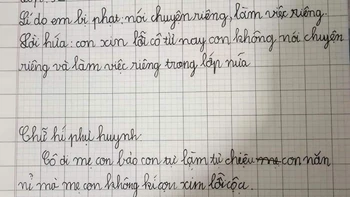 Lí do em bị phạt: nói chuyện riêng, làm việc riêng.
Lời hứa: con xin lỗi cô từ nay con không nói chuyện
riêng và làm việc riêng trong lớp nữa
Chữ kí phụ huynh
Cô ơi mẹ con bảo con tự làm tự chịu con năn
nỉ mà mẹ con không kí con xin lỗi cô ạ.